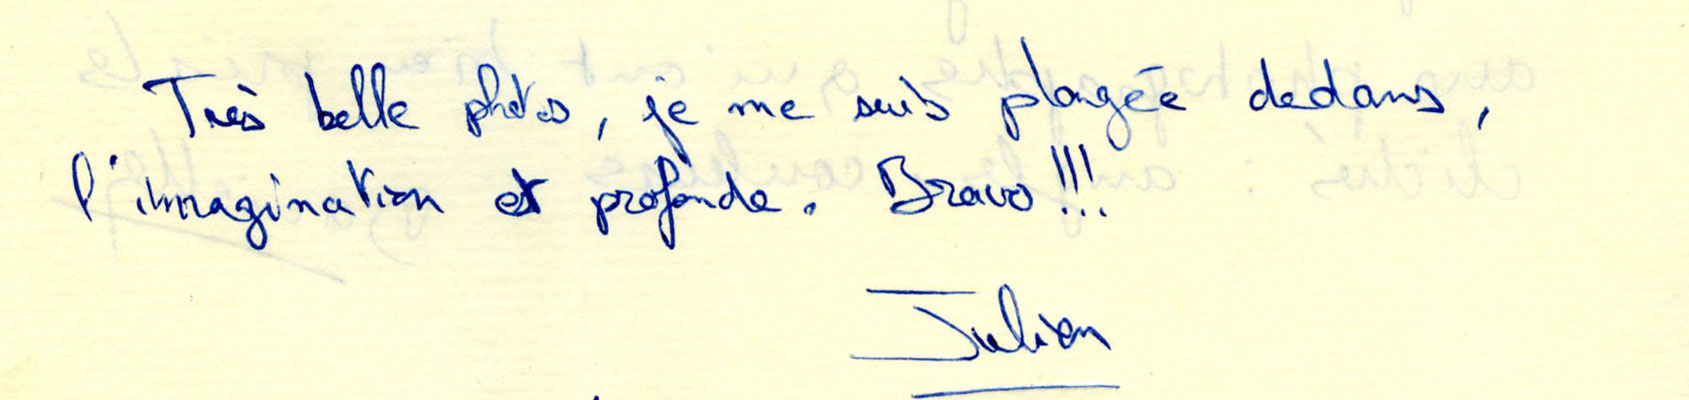 Très belle photos, je me suis plongée dedans,
l'immagination et profonde. Bravo !!!
Julien